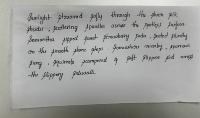 Sunlight shimmered softly through the sheer silk
shades, scattering sparkles across the spotless surface.
Samantha sipped sweet strawberry soda, seated silently
on the smooth stone steps. Somewhere nearby, sparrows
sang, squirrels scampered, soft slippers slid across
the slippery sidewalk.